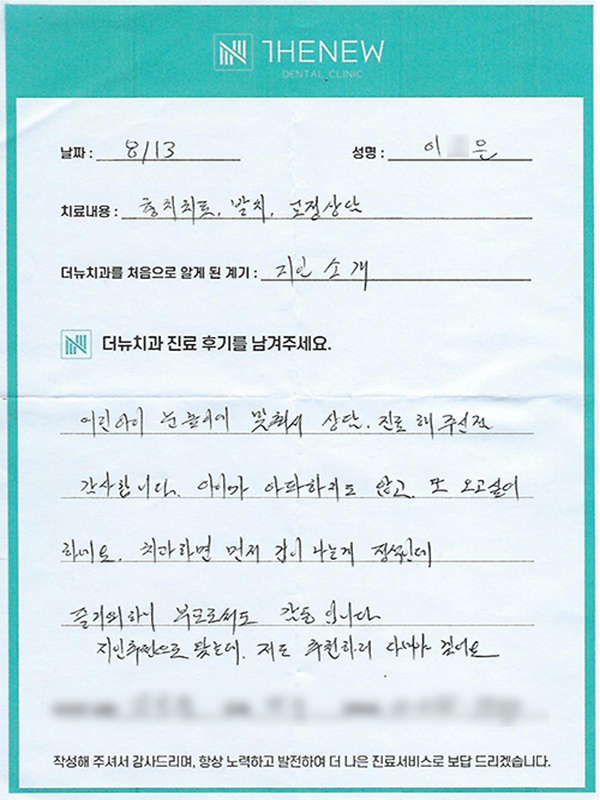 THENEW
DENTAL CLINIC
날짜 : 8/13 성명 : 이 은
치료내용 : 충치치료, 발치, 교정상담
더뉴치과를 처음으로 알게 된 계기 : 지인 소개
더뉴치과 진료 후기를 남겨주세요.
어린아이 눈높이에 맞춰서 상담. 진료 해 주신점
감사합니다. 아이가 아파하지도 않고. 또 오고싶어
하네요. 치과하면 먼저 겁이 나는게 정석인데
즐거워하니 부모로써도 감동입니다
지인추천으로 왔는데, 저도 추천하러 다녀야 겠어요
작성해 주셔서 감사드리며, 항상 노력하고 발전하여 더 나은 진료서비스로 보답 드리겠습니다.